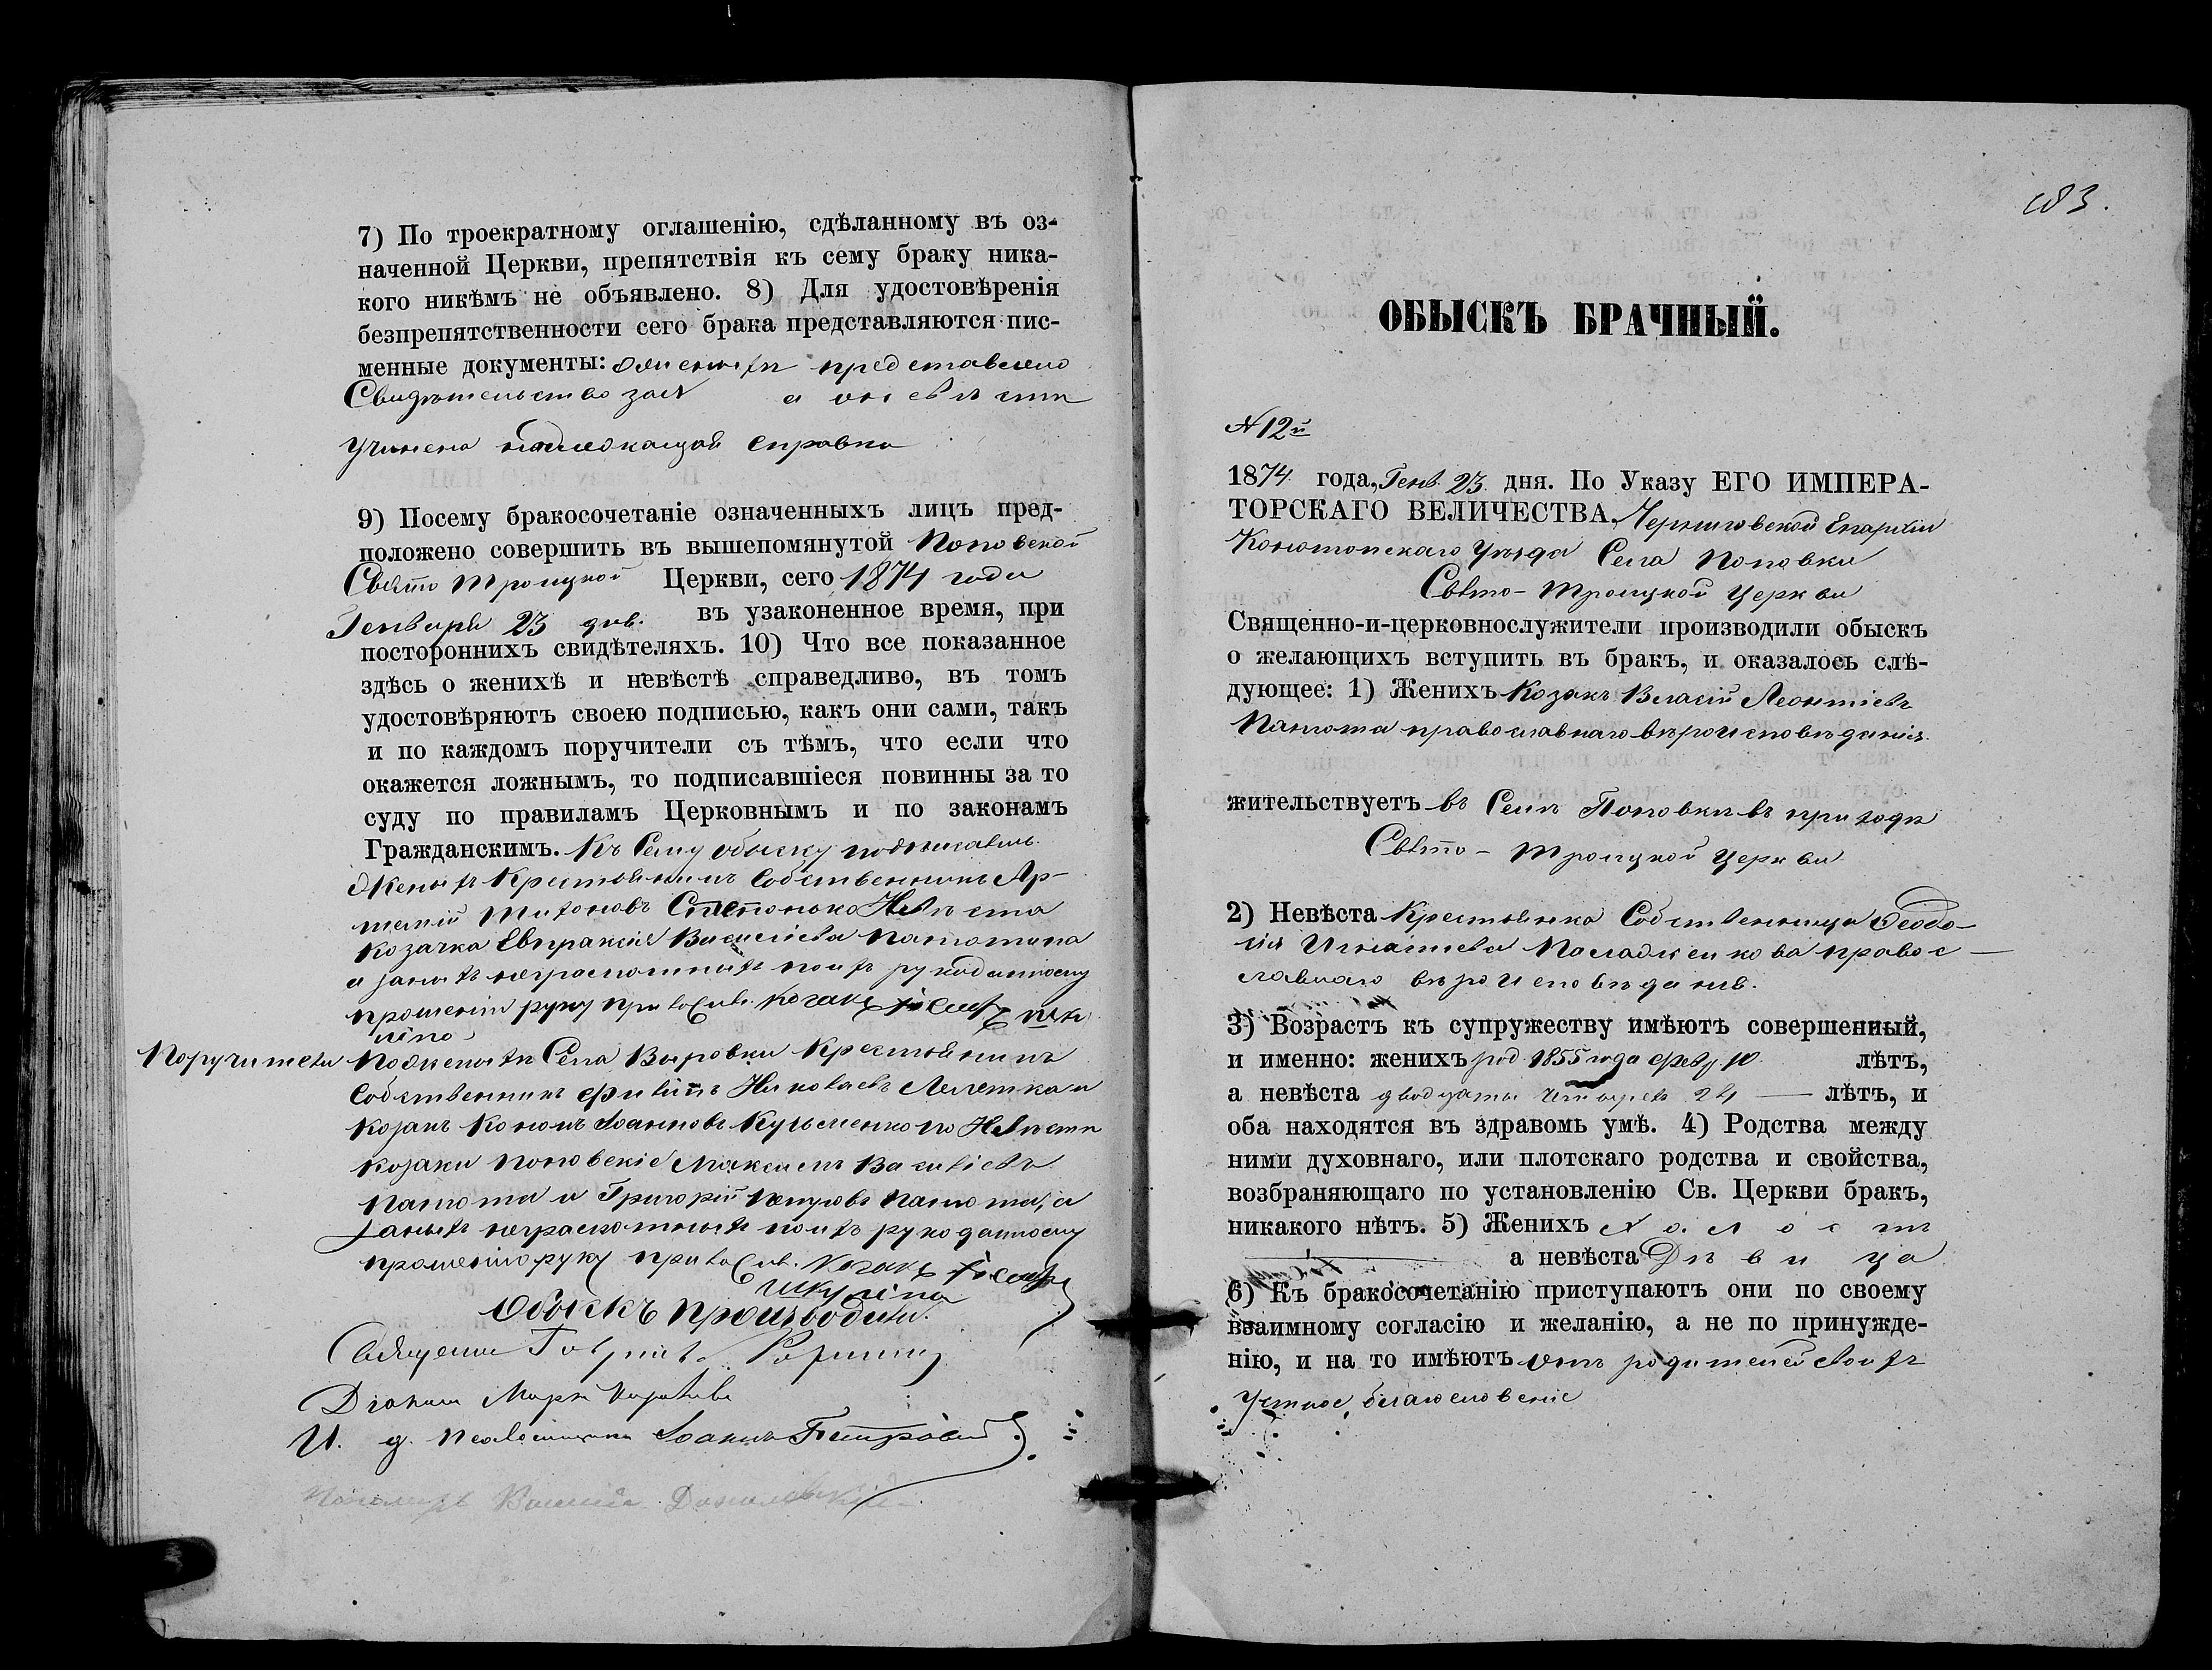 7) По троекратному оглашенію, сдѣланному въ оз-
наченной Церкви, препятствія къ сему браку ника-
кого никѣмъ не объявлено. 8) Для удостовѣренія
безпрепятственности сего брака представляются пис-
менные документы: о женихѣ представлено
Свидѣтельство за № а о невѣстѣ
учинена надлежащая справка
9) Посему бракосочетаніе означенныхъ лицъ пред-
положено совершить въ вышепомянутой Поповской
Свято Троицкой Церкви, сего 1874 года
Генваря 23 дня. въ узаконенное время, при
постороннихъ свидѣтеляхъ. 10) Что все показанное
здѣсь о женихѣ и невѣстѣ справедливо, въ томъ
удостовѣряютъ своею подписью, какъ они сами, такъ
и по каждомъ поручители съ тѣмъ, что если что
окажется ложнымъ, то подписавшіеся повинны за то
суду по правиламъ Церковнымъ и по законамъ
Гражданскимъ. Къ сему обыску подписались
Женихъ Крестьянинъ Собственникъ Ар-
темій Тихоновъ Невѣста
козачка Евпраксія Василіева Папотина
а за нихъ неграмотныхъ по ихъ рукоданному
прошенію руку приложилъ Козакъ Іосифъ Шку
ліпа
Поручители По женихѣ Села Вировки Крестьянинъ
Собственникъ Филиппъ Николаевъ Лелетка и
козакъ Кононъ Іоанновъ Кузьменко по Невѣстѣ
козаки Поповскіе Максимъ Василіевъ
Папота и Григорій Папота, а
за нихъ неграмотныхъ по ихъ рукоданному
прошенію руку приложилъ Козакъ Іосифъ
Шкуліпа
Обыскъ производили:
Священникъ
Діаконъ Маркъ
И. д. Псаломщика Іоаннъ Петровскій
Пономарь Василій
183.
ОБЫСКЪ БРАЧНЫЙ.
№ 12й
1874 года, Генв. 23 дня. По Указу ЕГО ИМПЕРА-
ТОРСКАГО ВЕЛИЧЕСТВА, Черниговской Епархіи
Конотопскаго Уѣзда Села Поповки
Свято-Троицкой Церкви
Священно-и-церковнослужители производили обыскъ
о желающихъ вступить въ бракъ, и оказалось слѣ-
дующее: 1) Женихъ Козакъ Власій Леонтіевъ
Папота православнаго вѣроисповѣданія.
жительствуетъ въ Селѣ Поповкѣ въ приходѣ
Свято-Троицкой Церкви
2) Невѣста Крестьянка Собственница Ѳеодо-
сія Игнатіева Паладженкова правос-
лавнаго вѣроисповѣданія.
3) Возрастъ къ супружеству имѣютъ совершенный,
и именно: женихъ род. 1855 года Февр. 10 лѣтъ,
а невѣста двадцать четыре 24 лѣтъ, и
оба находятся въ здравомъ умѣ. 4) Родства между
ними духовнаго, или плотскаго родства и свойства,
возбраняющаго по установленію Св. Церкви бракъ,
никакого нѣтъ. 5) Женихъ Холостъ
а невѣста Дѣвица
6) Къ бракосочетанію приступаютъ они по своему
взаимному согласію и желанію, а не по принужде-
нію, и на то имѣютъ отъ родителей своихъ
устное благословеніе